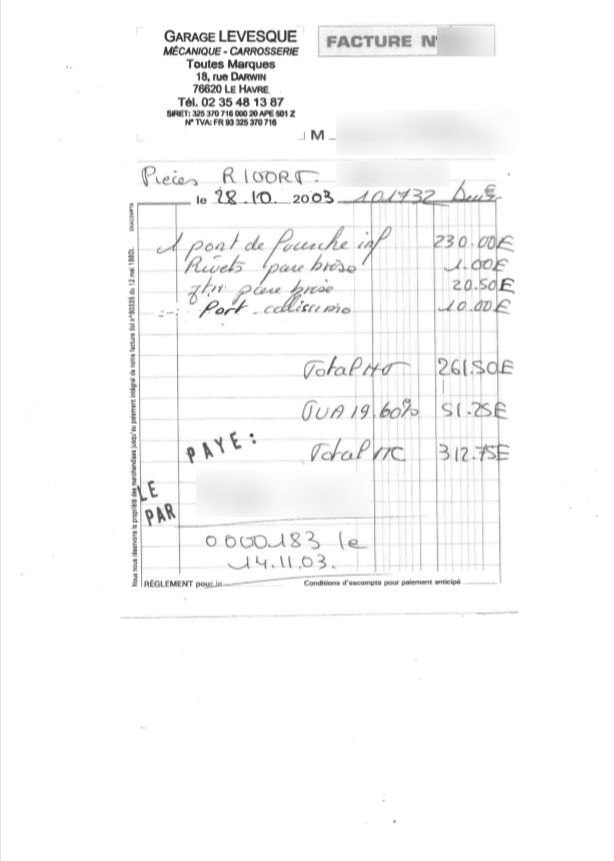 GARAGE LEVESQUE
MÉCANIQUE - CARROSSERIE
Toutes Marques
18, rue DARWIN
76620 LE HAVRE
Tél. 02 35 48 13 87
SIRET: 325 370 716 000 20 APE 501 Z
N° TVA: FR 93 325 370 716
FACTURE N°
M
Pieces
le 28.10. 2003 101732
1 pont de inf 230.00E
Rivets pare brise 1.00E
pare brise 20.50E
Port collissimo 10.00E
Total HT 261.50E
TVA 19.60% 51.25E
PAYE:
Total TTC 312.75E
LE
PAR
0000183 le
14.11.03.
RÈGLEMENT pour le
Conditions d'escompte pour paiement anticipé
Nous nous réservons la propriété des marchandises jusqu'au paiement intégral de notre facture (loi n°80335 du 12 mai 1980).
EXACOMPTA